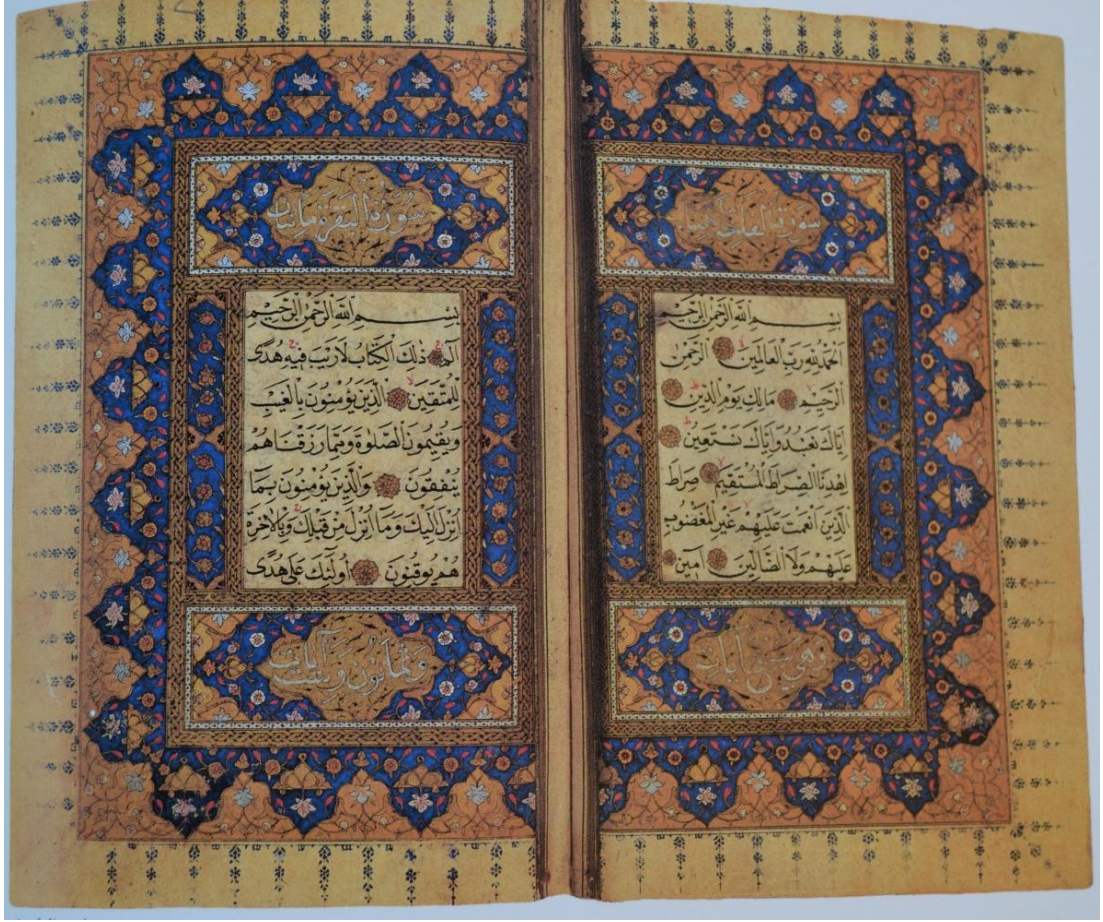 سورة الفاتحة
بسم الله الرحمن الرحيم
الحمد لله رب العالمين الرحمن
الرحيم مالك يوم الدين
إياك نعبد وإياك نستعين
اهدنا الصراط المستقيم صراط
الذين أنعمت عليهم غير المغضوب
عليهم ولا الضالين آمين
وهي سبع آيات
سورة البقرة مائتان
بِسْمِ اللَّهِ الرَّحْمٰنِ الرَّحِيمِ
الم ذٰلِكَ الْكِتَابُ لَا رَيْبَ فِيهِ هُدًى
لِلْمُتَّقِينَ الَّذِينَ يُؤْمِنُونَ بِالْغَيْبِ
وَيُقِيمُونَ الصَّلٰوةَ وَمِمَّا رَزَقْنَاهُمْ
يُنْفِقُونَ وَالَّذِينَ يُؤْمِنُونَ بِمَا
أُنْزِلَ إِلَيْكَ وَمَا أُنْزِلَ مِنْ قَبْلِكَ وَبِالْآخِرَةِ
هُمْ يُوقِنُونَ أُولٰئِكَ عَلَى هُدًى
وثمانون وست آيات